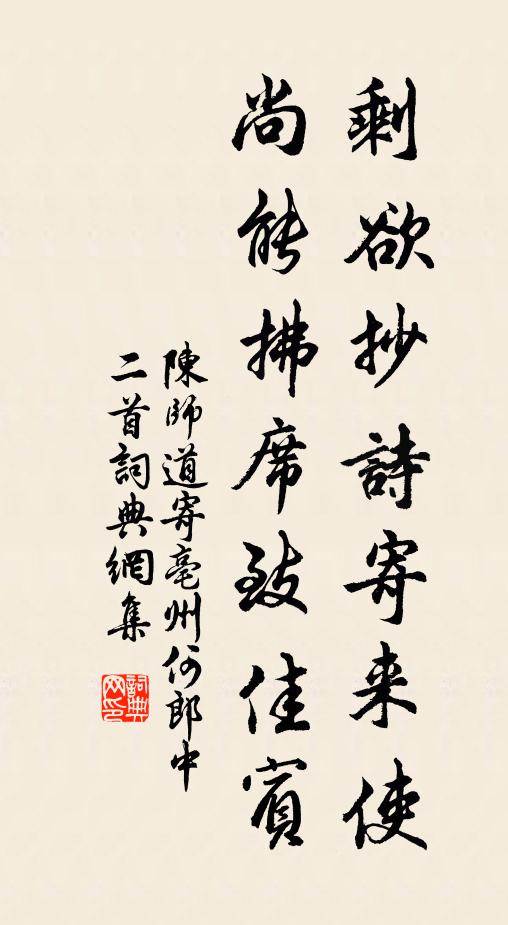 剩欲抄詩寄来使
尚能拂席致佳賓
陳師道寄亳州何郎中
二首詞典網集
詞典网印